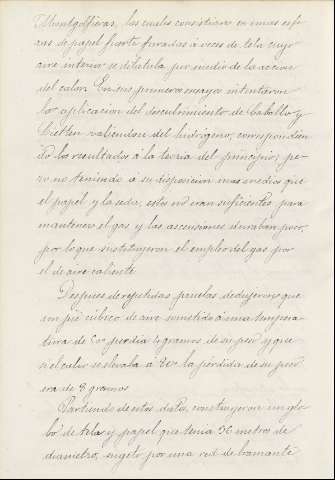 Montgolfieras, las cuales consistian en unas esfe
ras de papel fuerte forradas á veces de tela cuyo
aire interior se dilataba por medio de la accion
del calor. En sus primeros ensayos intentaron
la aplicacion del descubrimiento de Caballo y
valiendose del hidrógeno, correspondien
do los resultados á la teoria del principio; pe
ro no teniendo á su disposicion mas medios que
el papel y la seda, estos no eran suficientes para
mantener el gas y las ascensiones duraban poco,
por lo que sustituyeron el empleo del gas por
el de aire caliente.
Despues de repetidas pruebas dedujeron que
un pie cúbico de aire sometido á una tempera
tura de perdia 4 gramos de su peso y que
si el calor se elevaba á la pérdida de su peso
era de 8 gramos
Partiendo de estos datos, construyeron un glo
bo de tela y papel que tenia 36 metros de
diametro, sugeto por una red de bramante